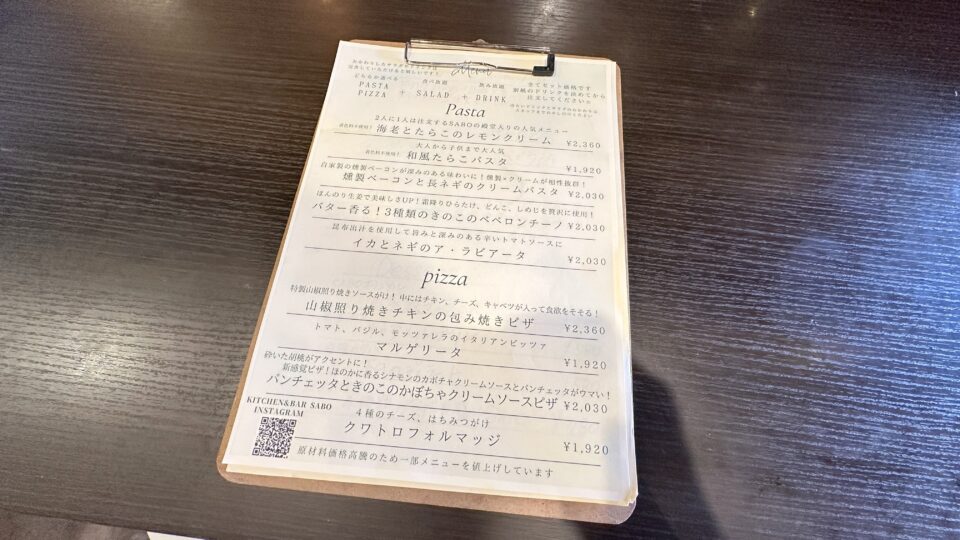 Menu
おかわりしたサラダやドリンクは
完食していただけると嬉しいです！
どちらか選べる 食べ放題 飲み放題
PASTA
PIZZA + SALAD + DRINK
全てセット価格です
別紙のドリンクを決めてから
注文してください
Pasta
2人に1人は注文するSABOの殿堂入りの人気メニュー
着色料不使用！ 海老とたらこのレモンクリーム ¥2,360
大人から子供まで大人気
着色料不使用！ 和風たらこパスタ ¥1,920
自家製の燻製ベーコンが深みのある味わいに！燻製×クリームが相性抜群！
燻製ベーコンと長ネギのクリームパスタ ¥2,030
ほんのり生姜で美味しさUP！霜降りひらたけ、どんこ、しめじを贅沢に使用！
バター香る！3種類のきのこのペペロンチーノ ¥2,030
昆布出汁を使用して旨みと深みのある辛いトマトソースに
イカとネギのア・ラビアータ ¥2,030
pizza
特製山椒照り焼きソースがけ！ 中にはチキン、チーズ、キャベツが入って食欲をそそる！
山椒照り焼きチキンの包み焼きピザ ¥2,360
トマト、バジル、モッツァレラのイタリアンピッツァ
マルゲリータ ¥1,920
砕いた胡桃がアクセントに！
新感覚ピザ！ほのかに香るシナモンのカボチャクリームソースとパンチェッタがウマい！
パンチェッタときのこのかぼちゃクリームソースピザ ¥2,030
4種のチーズ、はちみつがけ
クワトロフォルマッジ ¥1,920
KITCHEN&BAR SABO
INSTAGRAM
原材料価格高騰のため一部メニューを値上げしています